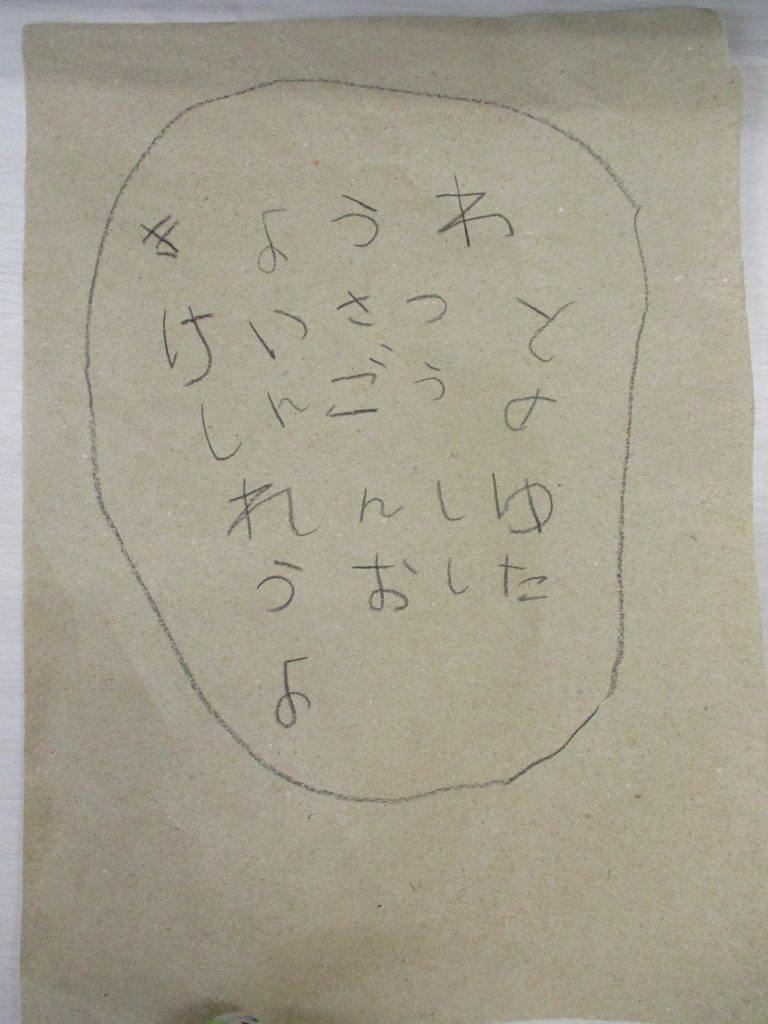 きようわ
けいさつと
しんごうの
れんしゆ
うおした
よ